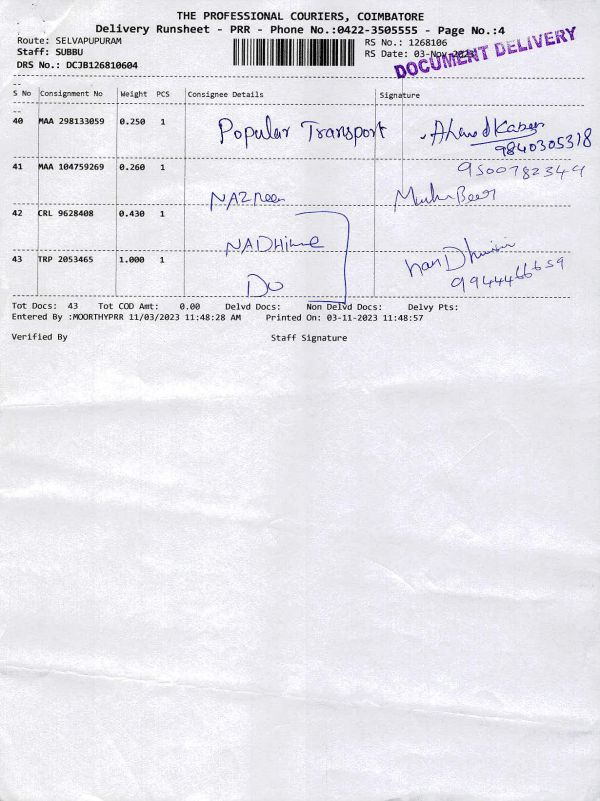 THE PROFESSIONAL COURIERS, COIMBATORE
Delivery Runsheet - PRR - Phone No.:0422-3505555 - Page No.:4
Route: SELVAPUPURAM
RS No.: 1268106
Staff: SUBBU
RS Date: 03-Nov-2023
DRS No.: DCJB126810604
DOCUMENT DELIVERY
S No Consignment No Weight PCS Consignee Details Signature
40 MAA 298133059 0.250 1 Popular Transport
9840305318
41 MAA 104759269 0.260 1 NAZreen
9500782344
42 CRL 9628408 0.430 1 NADHime
43 TRP 2053465 1.000 1 Do
9944466659
Tot Docs: 43 Tot COD Amt: 0.00 Delvd Docs: Non Delvd Docs: Delvy Pts:
Entered By :MOORTHYPRR 11/03/2023 11:48:28 AM Printed On: 03-11-2023 11:48:57
Verified By Staff Signature